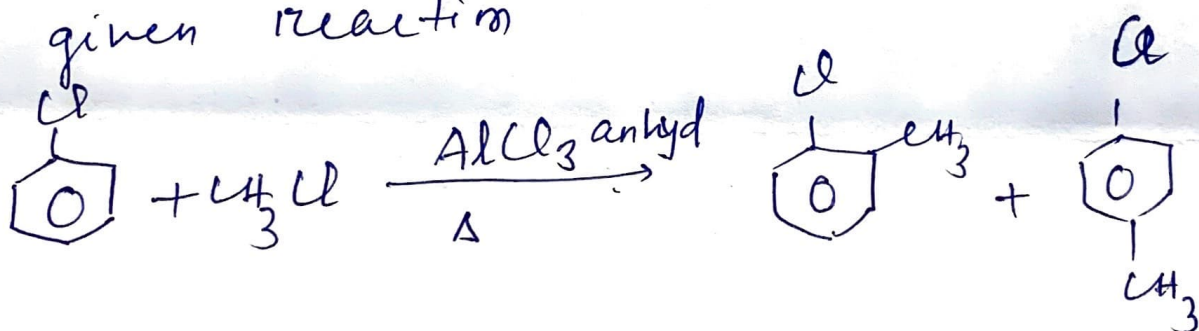 given reaction
Cl Cl Cl
+ CH3Cl AlCl3 anhyd CH3 +
Δ
CH3